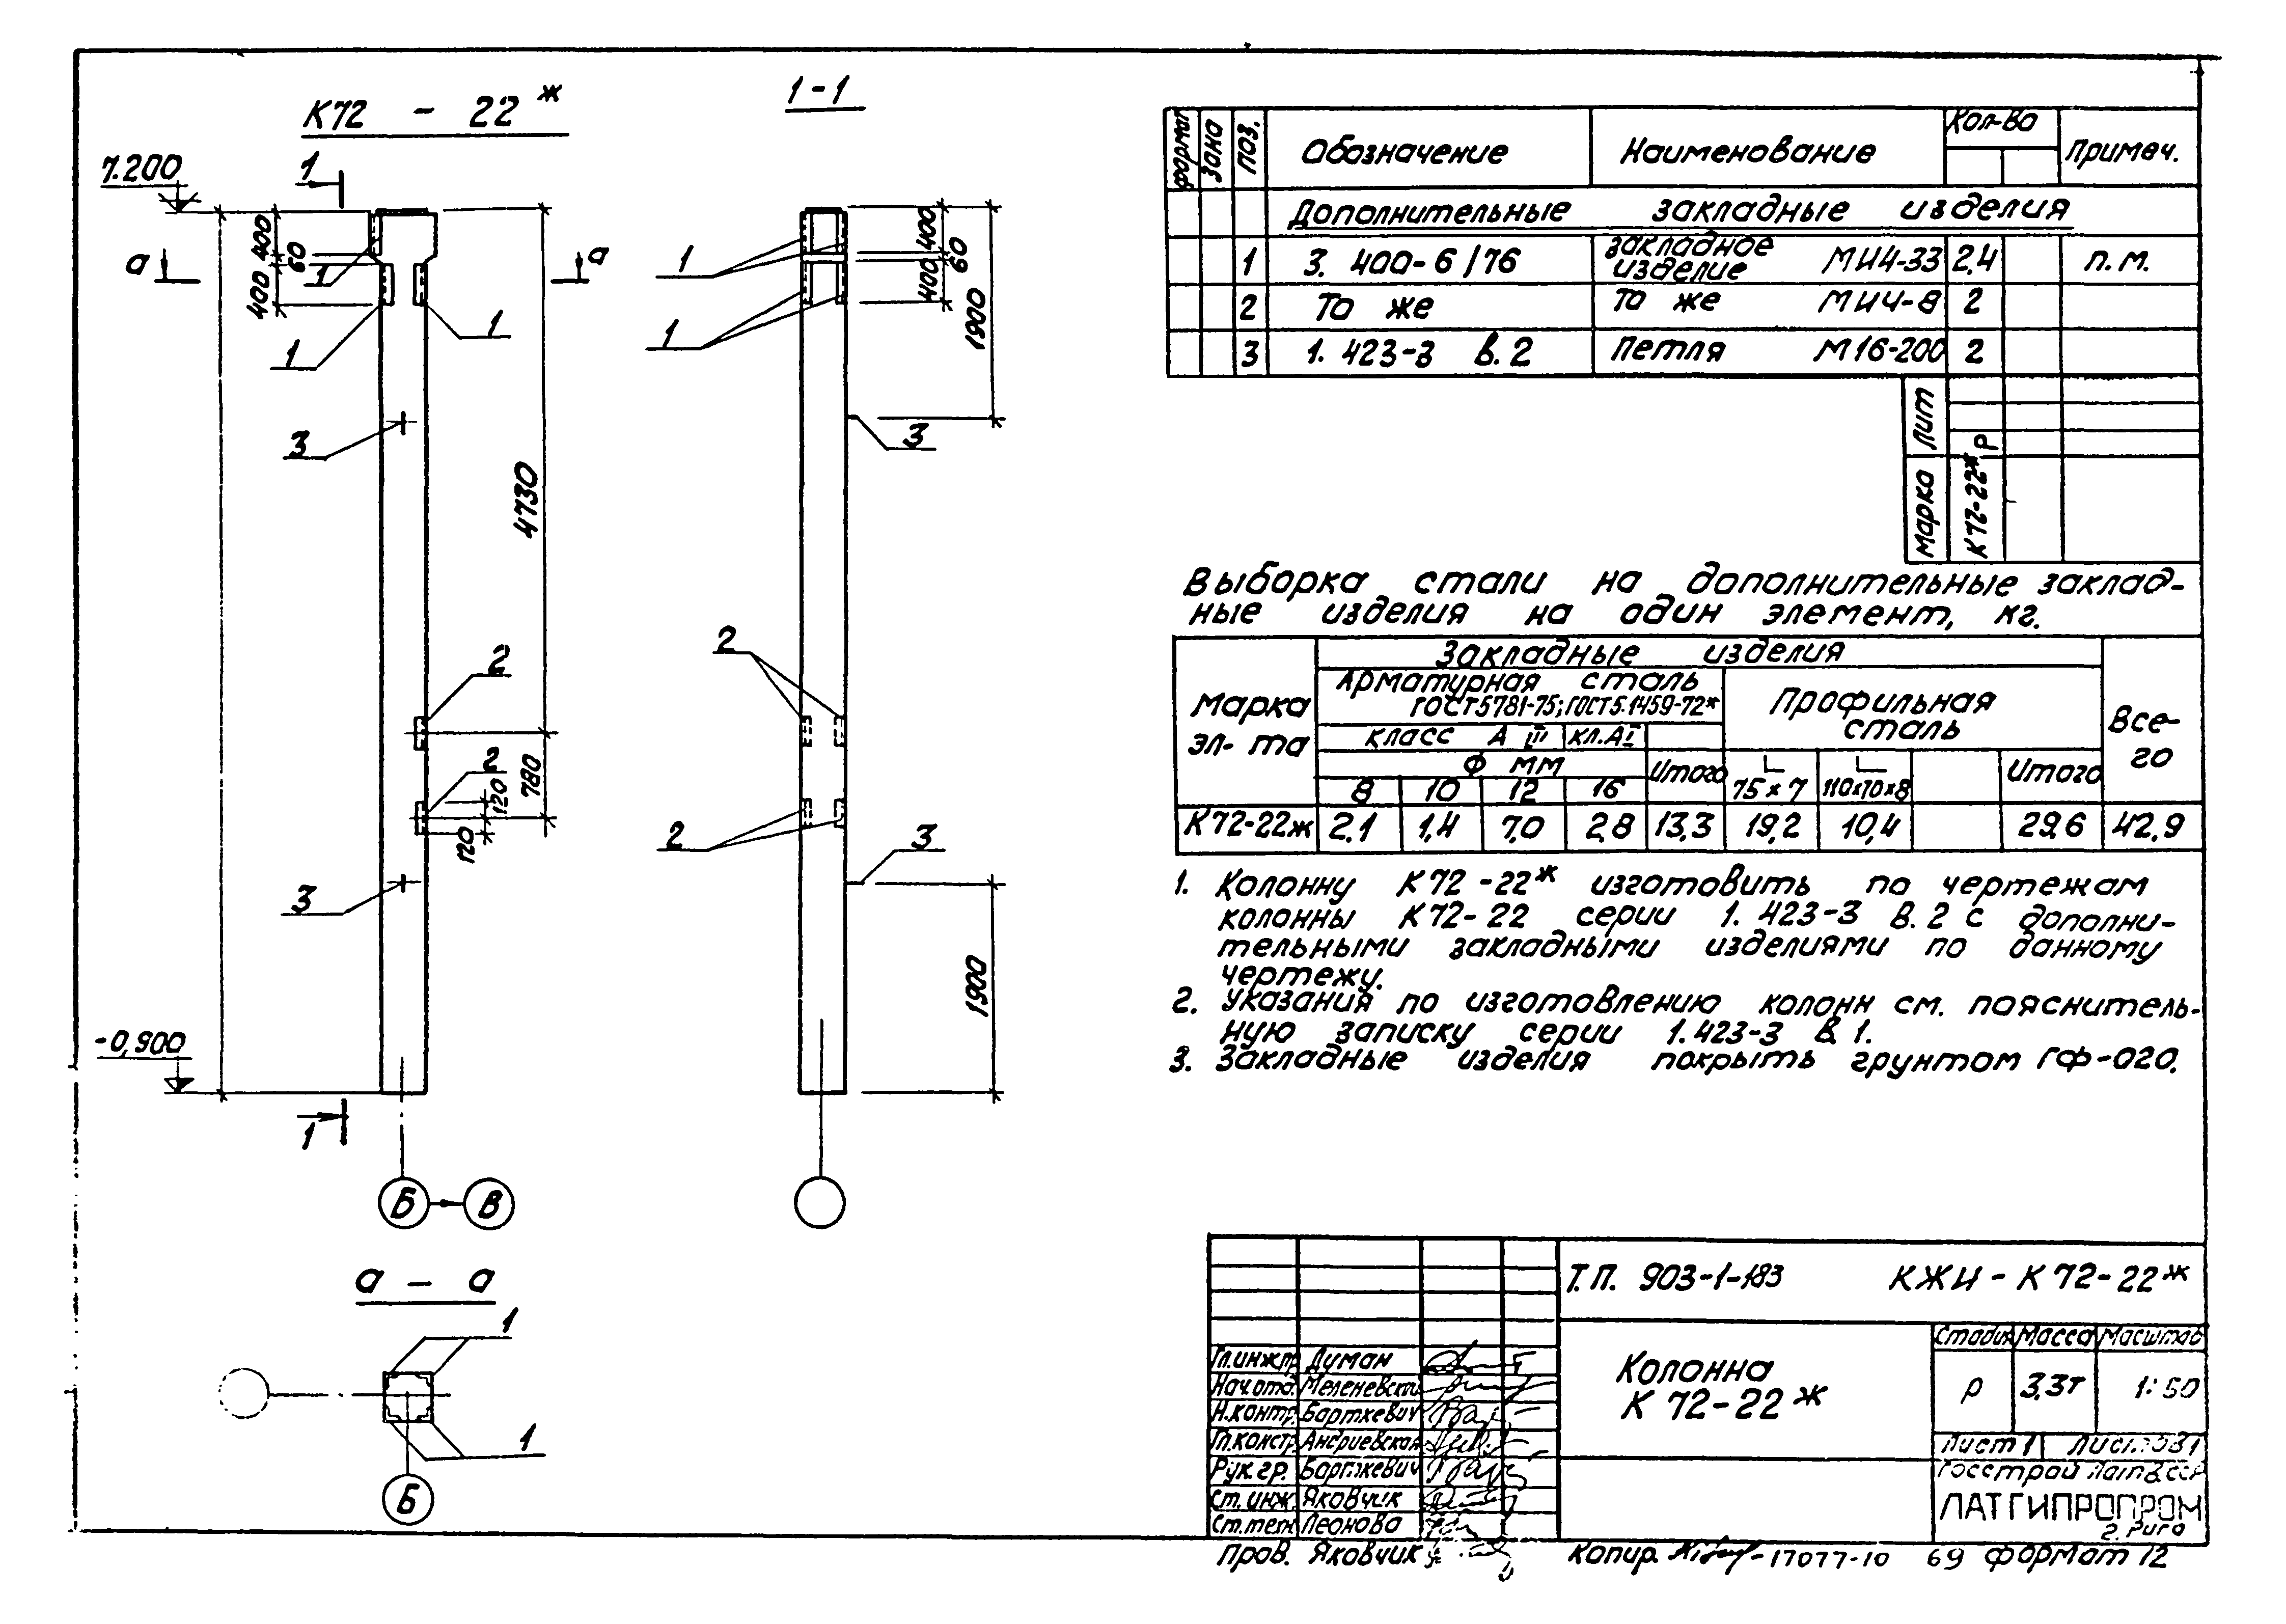 К72 - 22ж
1-1
7.200
1
400
60
400
а
а
1
1
1
3
4730
2
2
780
120
120
3
-0,900
1
Б
В
1
1
400
60
400
1900
3
2
2
3
1900
а - а
1
1
Б
формат
зона
поз.
Обозначение
Наименование
Кол-во
Примеч.
Дополнительные закладные изделия
1 3.400-6/76 закладное изделие МИ4-33 2,4 п.м.
2 То же То же МИ4-8 2
3 1.423-3 в.2 Петля М16-200 2
Лит
Р
Марка
К72-22ж
Выборка стали на дополнительные заклад-
ные изделия на один элемент, кг.
Марка эл-та
Закладные изделия
Арматурная сталь
ГОСТ5781-75; ГОСТ5.1459-72*
Профильная сталь
Все-
го
класс А III
кл.АI
Ф мм
Итого
∟ 75×7
∟ 110×70×8
Итого
8 10 12 16
К72-22ж 2,1 1,4 7,0 2,8 13,3 19,2 10,4 29,6 42,9
1. Колонну К72-22ж изготовить по чертежам
колонны К72-22 серии 1.423-3 В.2 с дополни-
тельными закладными изделиями по данному
чертежу.
2. Указания по изготовлению колонн см. пояснитель-
ную записку серии 1.423-3 В.1.
3. Закладные изделия покрыть грунтом ГФ-020.
Т.П. 903-1-183 КЖИ - К72-22ж
Колонна
К 72-22ж
Стадия Масса Масштаб
Р 3,3т 1:50
Лист 1 Листов 1
Госстрой Латв.ССР
ЛАТГИПРОПРОМ
г. Рига
Гл.инж.пр. Думан
Нач.отд. Меленевский
Н.контр. Барткевич
Гл.констр. Андриевская
Рук.гр. Барткевич
Ст.инж. Яковчик
Ст.техн. Леонова
Пров. Яковчик
Копир. 17077-10 69 Формат 12